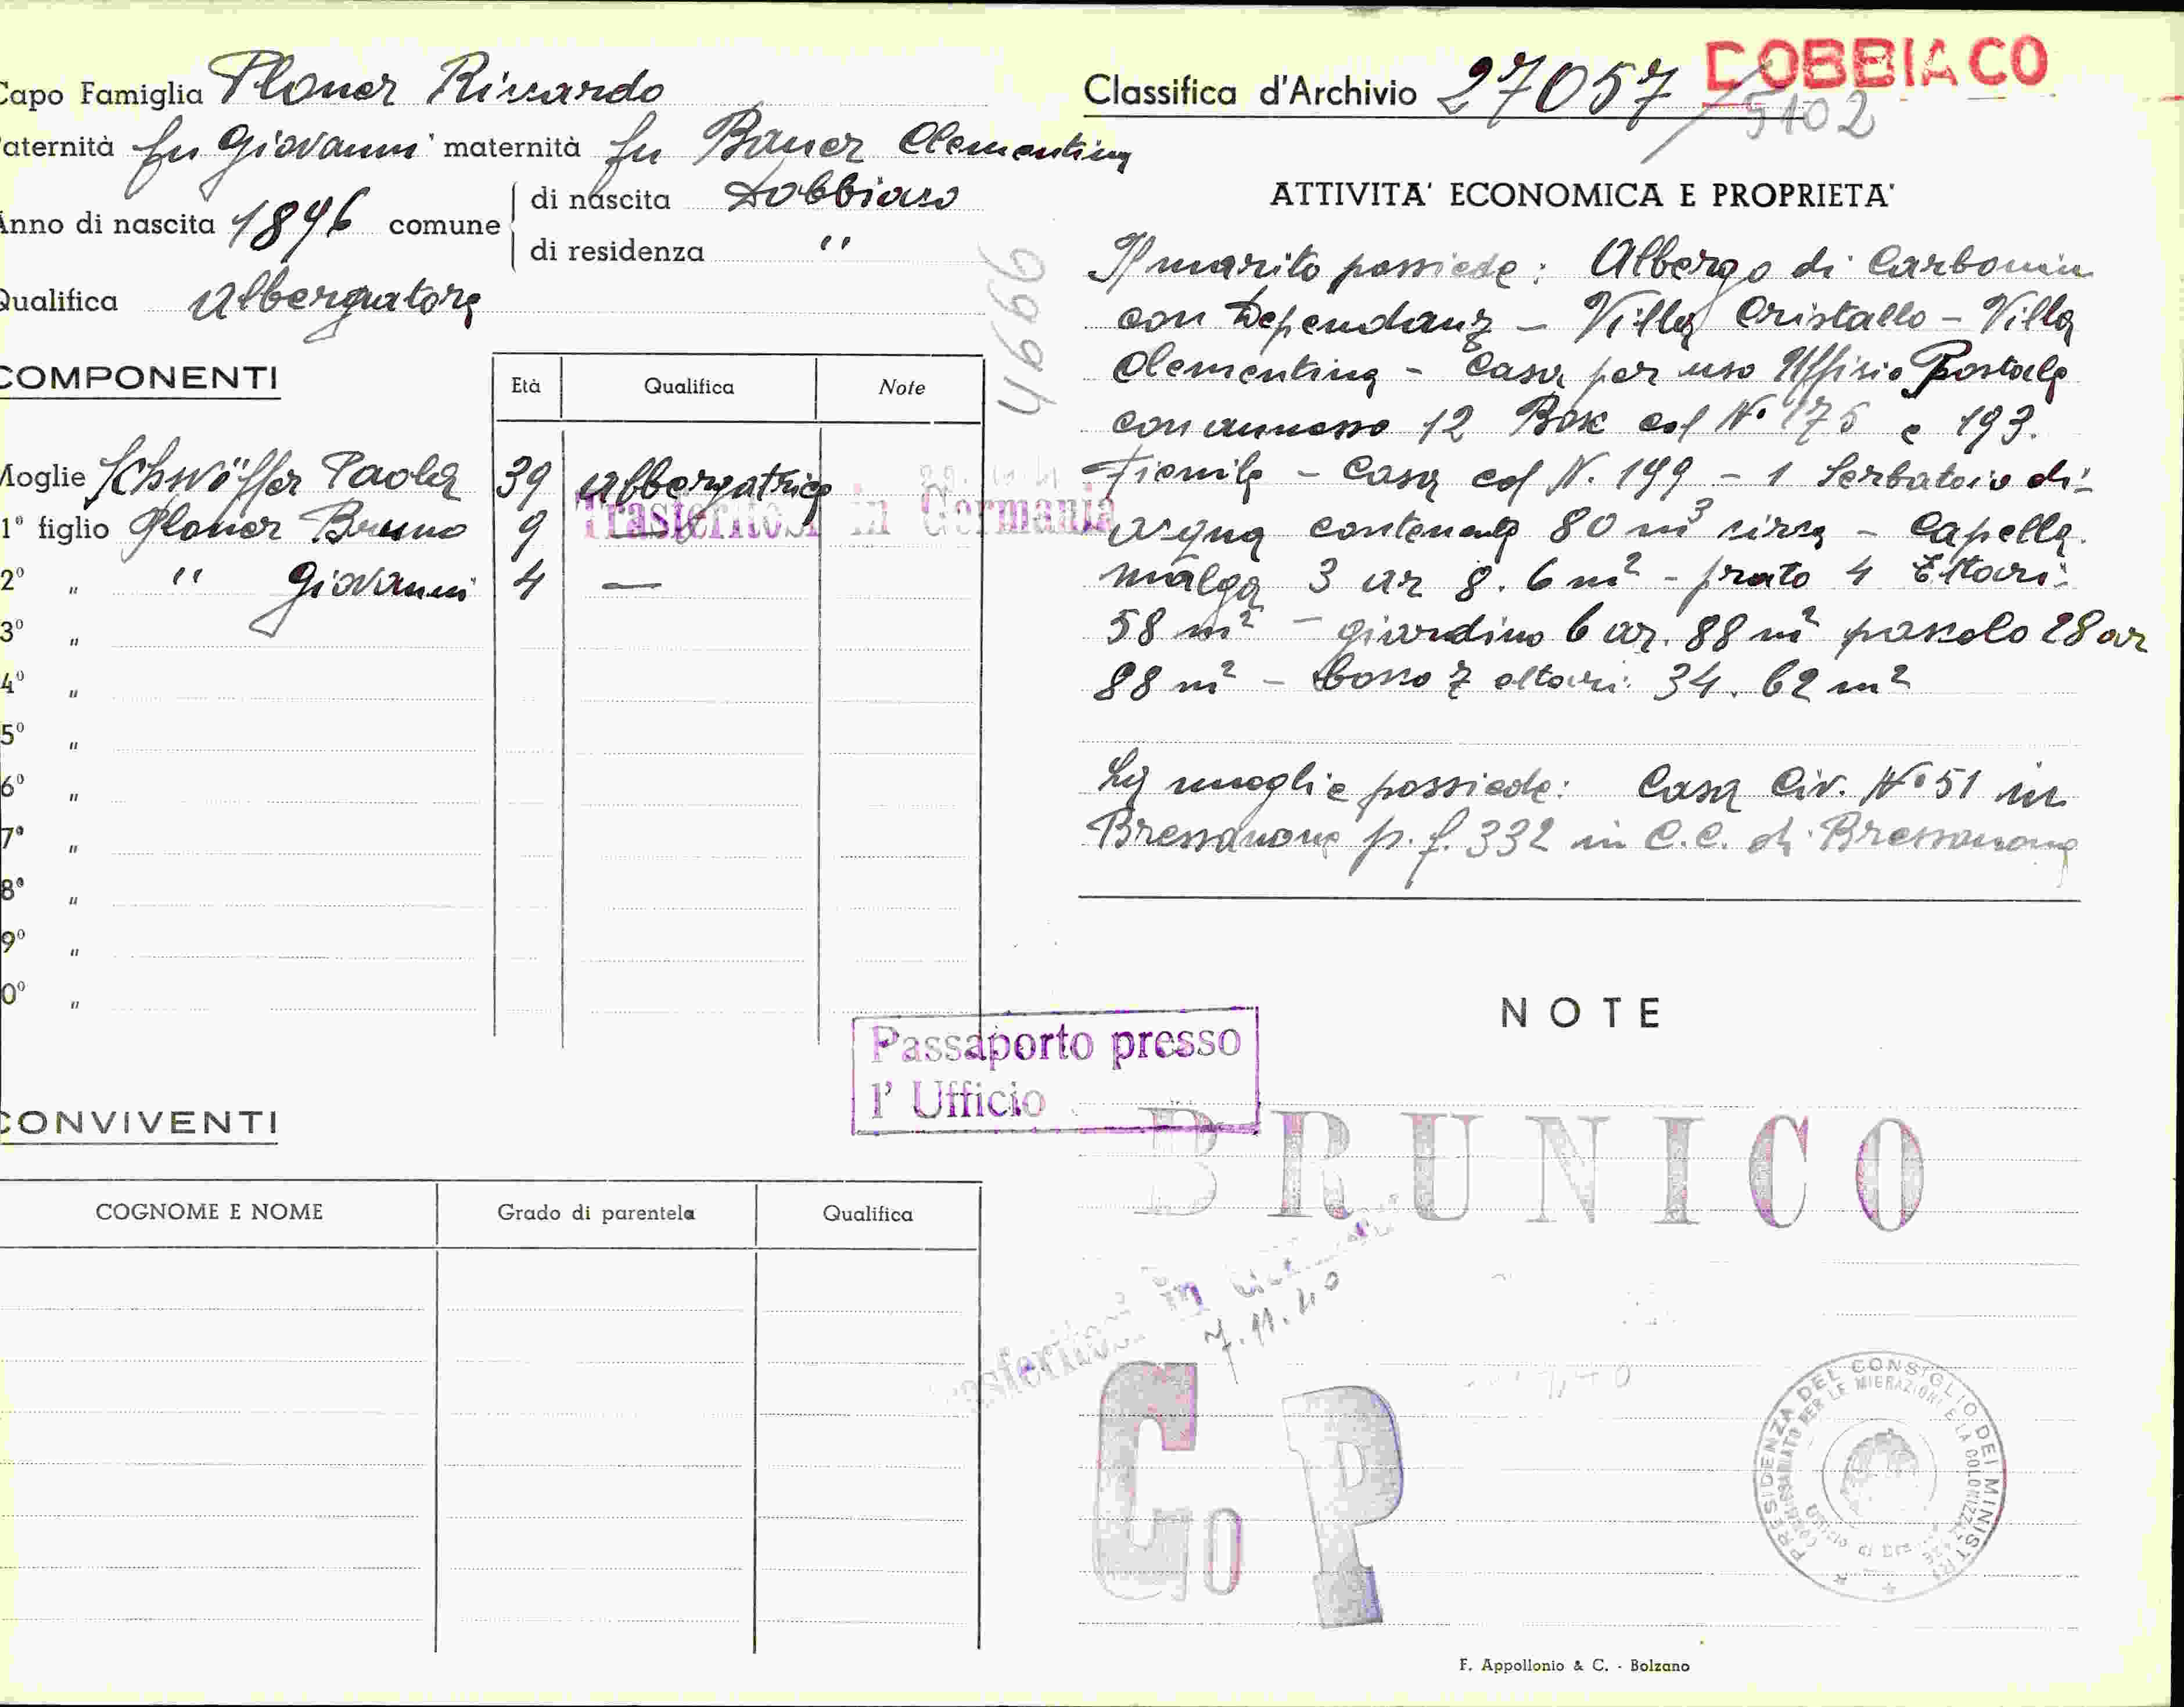 Capo Famiglia Ploner Riccardo
aternità fu Giovanni maternità fu Bauer Clementina
Anno di nascita 1896 comune di nascita Dobbiaco
di residenza "
Qualifica Albergatore
COMPONENTI
Età Qualifica Note
Moglie Paola 39 Albergatrice
1° figlio Ploner Bruno 9 —
2° " " Giovanni 4 —
3° "
4° "
5° "
6° "
7° "
8° "
9° "
0° "
Trasferitosi in Germania
4696
Passaporto presso
l' Ufficio
CONVIVENTI
COGNOME E NOME Grado di parentela Qualifica
Classifica d'Archivio 27057 / 5102
DOBBIACO
ATTIVITA' ECONOMICA E PROPRIETA'
Il marito possiede: Albergo di Carbonin
con Dependanz – Villa Cristallo – Villa
Clementina – Casa per uso Uffisio Postale
con annesso 12 Box col N° 175 e 193.
Fienile – Casa col N. 199 – 1 Serbatoio di
acqua contenente 80 m³ circa – Capella.
malga 3 ar 8. 6 m² – prato 4 Ettari
58 m² – giardino 6 ar. 88 m² pascolo 28 ar
88 m² – bosco 7 ettari 34. 62 m²
La moglie possiede: Casa Civ. N° 51 in
Bressanone p. f. 332 in C.C. di Bressanone
NOTE
BRUNICO
7.11.40
Go P
PRESIDENZA DEL CONSIGLIO DEI MINISTRI
COMMISSARIATO PER LE MIGRAZIONI E LA COLONIZZAZ
F. Appollonio & C. - Bolzano